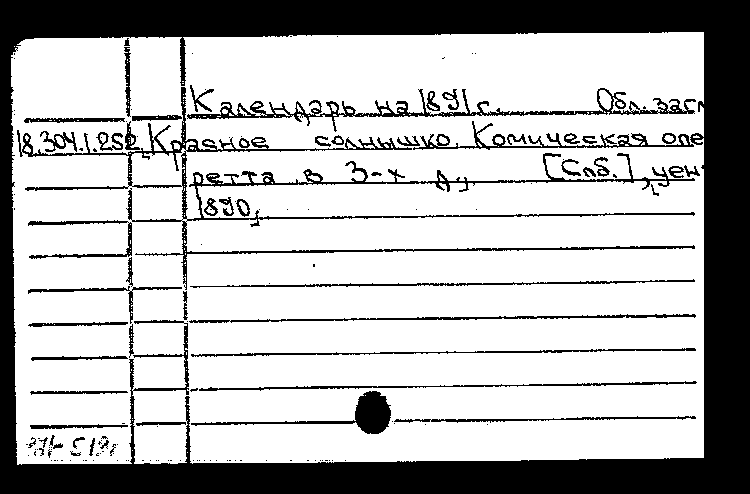 Календарь на 1891 г. Обл. засл
18.304.1.252 Красное солнышко. Комическая опе
ретта в 3-х д., [Спб.], ценз
1890,